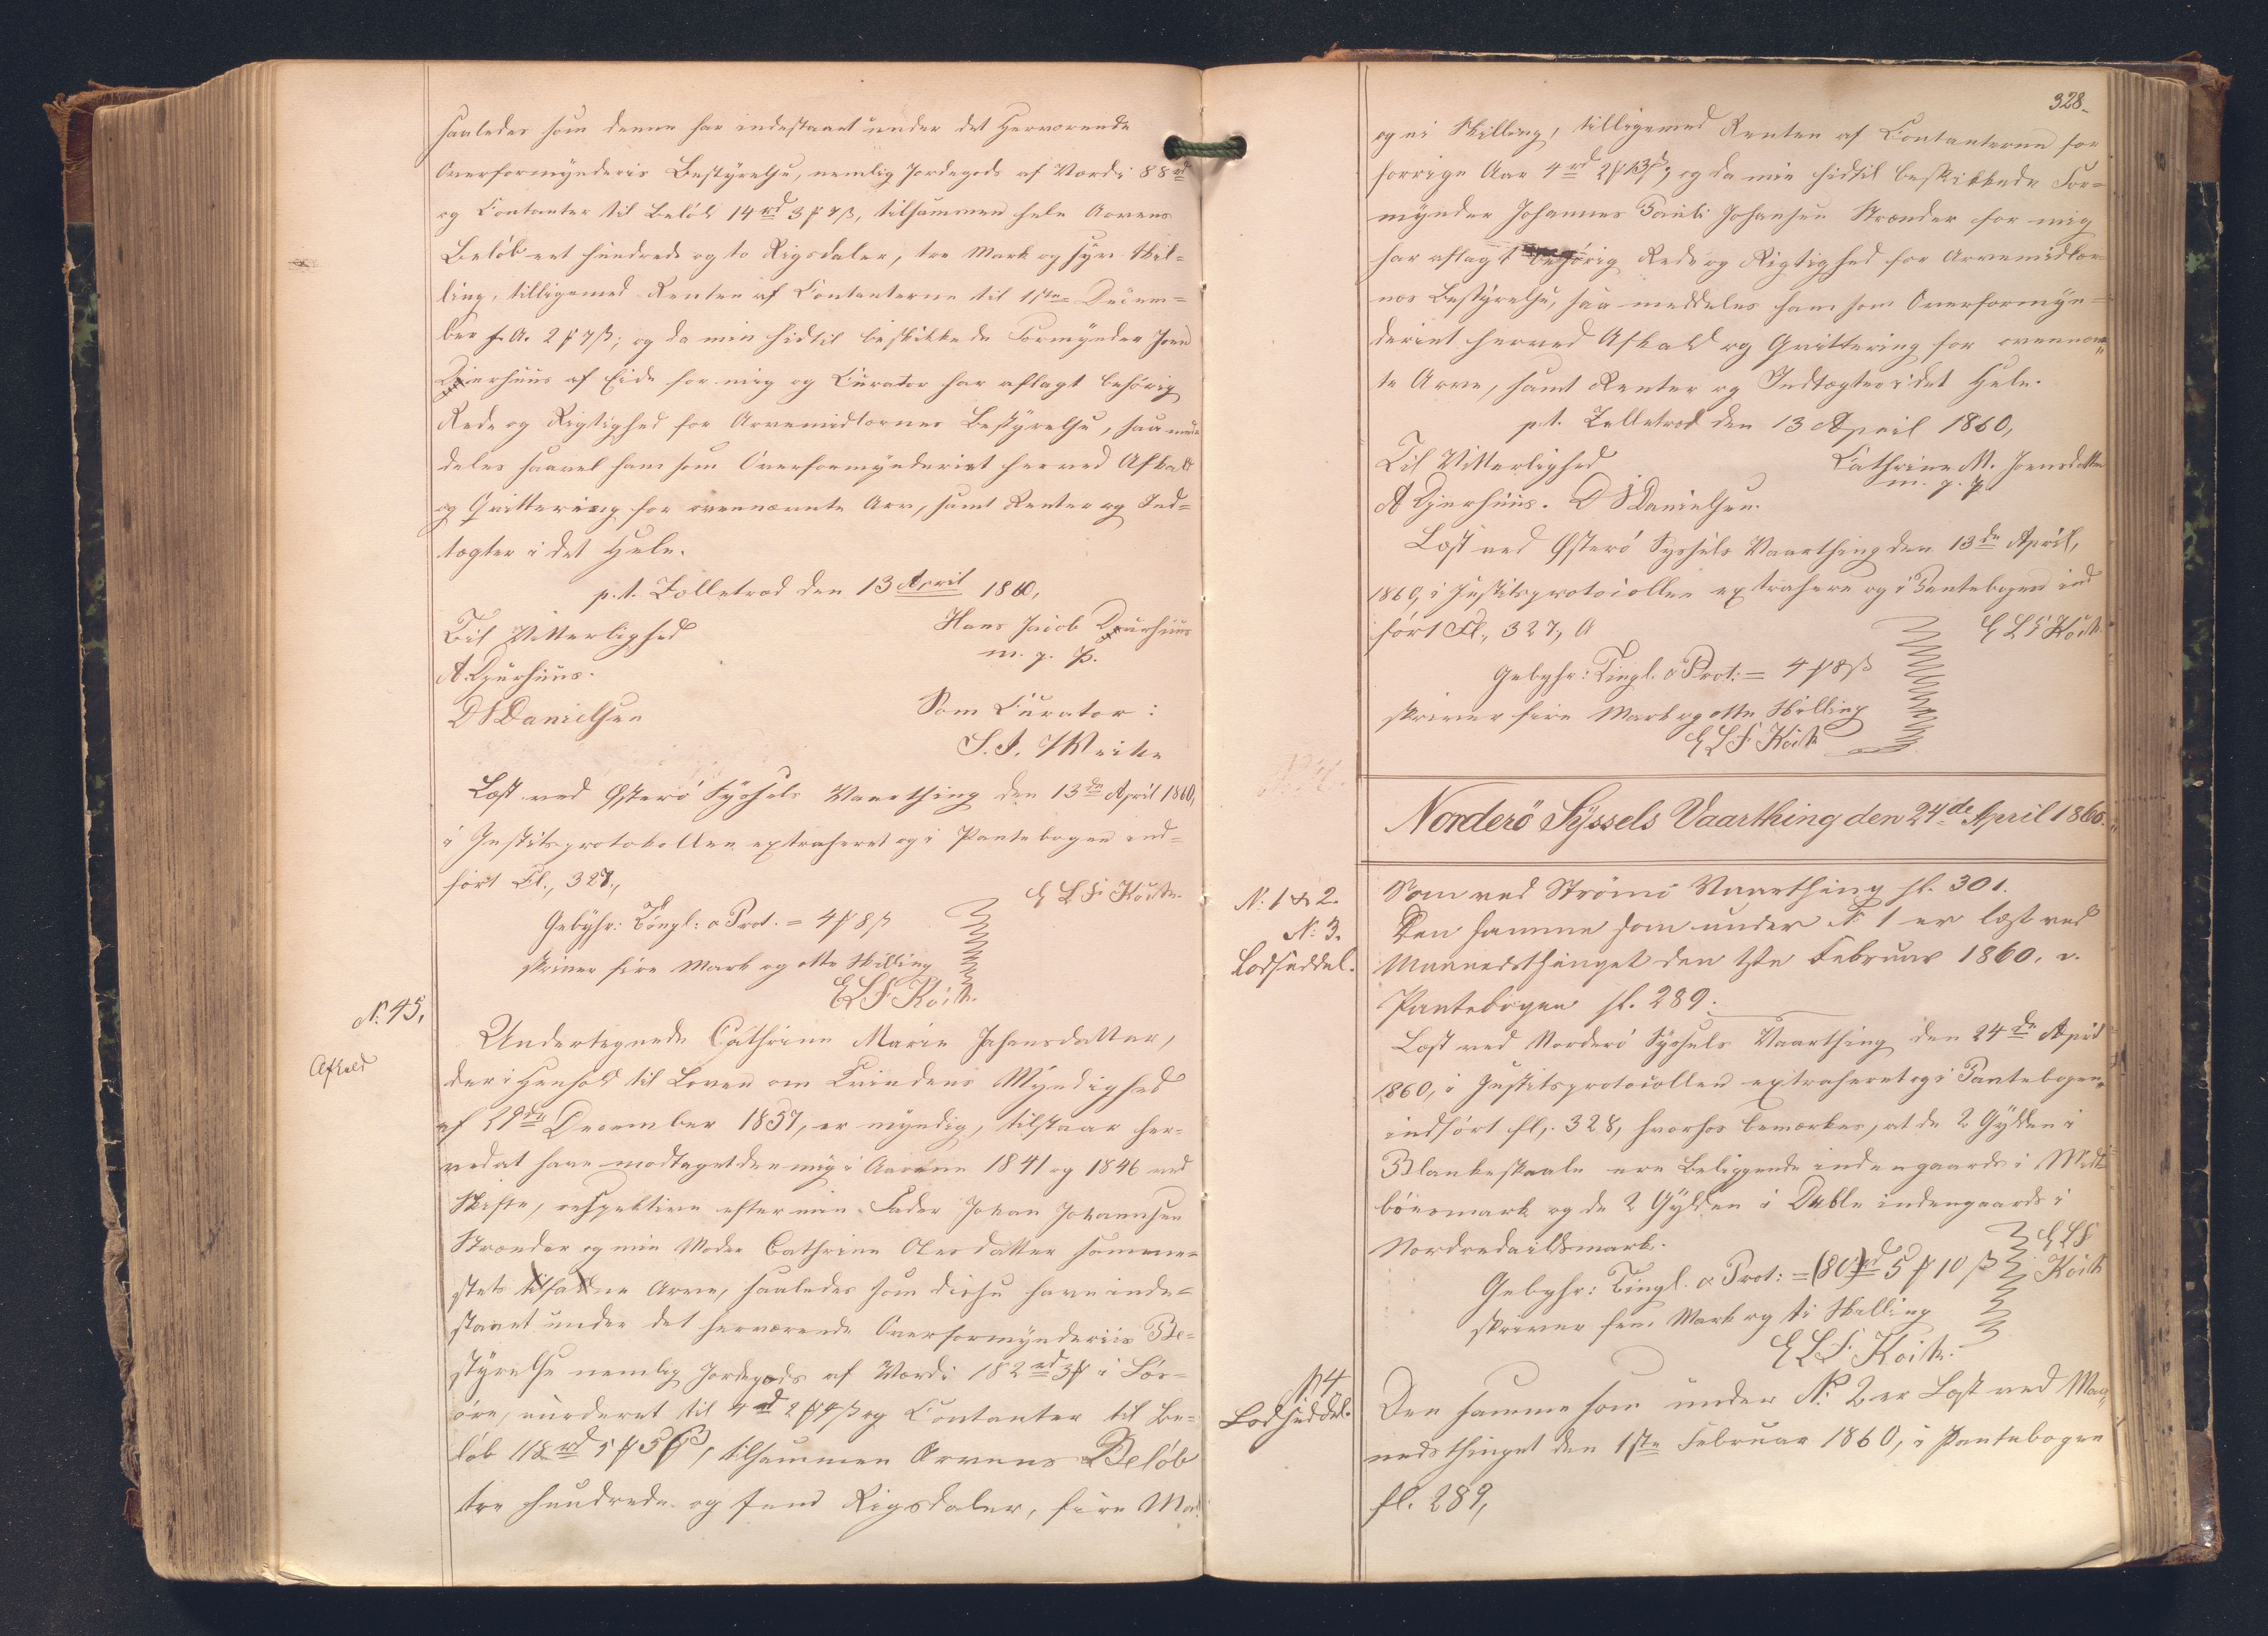 saaledes som denne har indestaaet under det herværende
Overformynderies Bestyrelse, nemlig Jordegods af Værdi 88 rd
og Contanter til Beløb 14 rd 3 ꝑ 7 ß, tilsammen hele Arvens
Beløb eet hundrede og to Rigsdaler, tre Mark og syv Skil=
ling, tilligemed Renten af Contanterne til 1ste Decem=
ber f. A. 2 ꝑ 7 ß; og da min hidtil beskikkede Formynder Joen
Djurhuus af Eide for mig og Curator har aflagt behørig
Rede og Rigtighed for Arvemidlernes Bestyrelse, saa med=
deles saavel ham som Overformynderiet herved Afkald
og Qvittering for ovennævnte Arv, samt Renter og Ind=
tægter i det Hele.
p. t. Zelletræd den 13 April 1860,
Til Vitterlighed
Hans Jacob Djurhuus
m. f. P.
A. Djurhuus.
DIDanielsen
Som Curator:
Læst ved Østerø Syssels Vaarthing den 13de April 1860,
i Justitsprotokollen extraheret og i Pantebogen ind=
ført Fl., 327,
E L F Koch.
Gebyhr: Tingl: a Prot. = 4 ꝑ 8 ß
skriver fire Mark og otte Skilling
ELF Koch.
N. 45,
Afkald
Undertegnede Cathrine Marie Johansdatter,
der i Henhold til Loven om Qvindens Myndighed
af 29de December 1857, er myndig, tilstaar her=
ved at have modtaget den mig i Aarene 1841 og 1846 ved
Skifte, respektive efter min Fader Johan Johannesen
Strænder og min Moder Cathrine Olesdatter samme=
steds tilfaldne Arve, saaledes som disse have inde=
staaet under det herværende Overformynderies Be=
styrelse nemlig Jordegods af Værdi 182 rd 3 ꝑ i Løs=
øre, vurderet til 4 rd 2 ꝑ 4 ß og Contanter til Be=
løb 118 rd 5 ꝑ 5 ß, tilsammen Arvens Beløb
tre hundrede og fem Rigsdaler, fire Mark
328.
og ni Skilling, tilligemed Renten af Contanterne for
forrige Aar 4 rd 2 ꝑ 13 ß, og da min hidtil beskikkede For=
mynder Johannes Pauli Johansen Strænder for mig
har aflagt behørig Rede og Rigtighed for Arvemidler=
nes Bestyrelse, saa meddeles ham som Overformyn=
deriet herved Afkald og Qvittering for ovennævn=
te Arve, samt Renter og Indtægter i det Hele.
p. t. Zelletræd den 13 April 1860,
Til Vitterlighed
Cathrine M. Joensdatter
m. f. P.
A Djurhuus. DIDanielsen.
Læst ved Østerø Syssels Vaarthing den 13de April,
1860, i Justitsprotocollen extraheret og i Pantebogen ind
ført Fl., 327, A
E L F Koch.
Gebyhr: Tingl. a Prot: = 4 ꝑ 8 ß
skriver fire Mark og otte Skilling
ELF Koch
Norderö Syssels Vaarthing den 24de April 1860.
N: 1 & 2.
Som ved Strømø Vaarthing fl. 301.
N: 3.
Lodseddel.
Den samme som under N: 1 er læst ved
Maanedsthinget den 1ste Februar 1860. v.
Pantebogen fl. 289.
Læst ved Norderø Syssels Vaarthing den 24de April
1860, i Justitsprotocollen extraheret og i Pantebogen
indført fl,. 328, hvorhos bemærkes, at de 2 Gylden i
Blankeskaale ere beliggende indengaards i Midt=
bøesmark og de 2 Gylden i Dable indengaards i
Nordredailsmark.
ELF
Koch
Gebyhr: Tingl. a Prot: = (80) rd 5 ꝑ 10 ß
skriver fem Mark og ti Skilling
ELF Koch.
N. 4
Lodseddel.
Den samme som under N. 2 er læst ved Maa=
nedsthinget den 1ste Februar 1860, i Pantebogen
fl. 289,